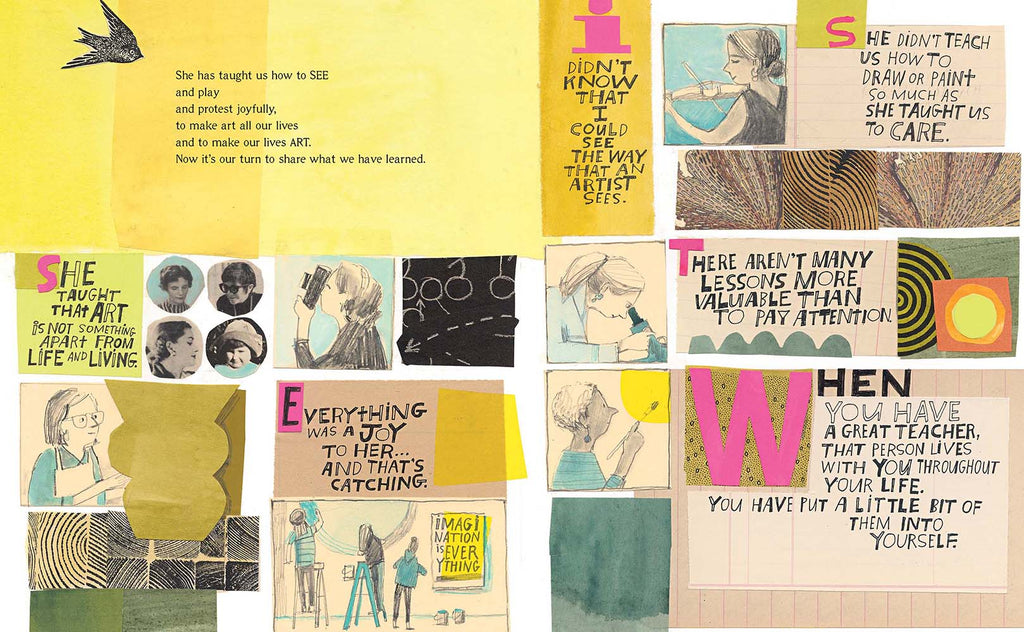 She has taught us how to SEE
and play
and protest joyfully,
to make art all our lives
and to make our lives ART.
Now it's our turn to share what we have learned.
SHE
TAUGHT
THAT ART
IS NOT SOMETHING
APART FROM
LIFE AND LIVING.
EVERYTHING
WAS A JOY
TO HER...
AND THAT'S
CATCHING.
IMAGI
NATION
IS
EVER
YTHING
i
DIDN'T
KNOW
THAT
I
COULD
SEE
THE WAY
THAT AN
ARTIST
SEES.
SHE DIDN'T TEACH
US HOW TO
DRAW OR PAINT
SO MUCH AS
SHE TAUGHT US
TO CARE.
THERE AREN'T MANY
LESSONS MORE
VALUABLE THAN
TO PAY ATTENTION.
WHEN
YOU HAVE
A GREAT TEACHER,
THAT PERSON LIVES
WITH YOU THROUGHOUT
YOUR LIFE.
YOU HAVE PUT A LITTLE BIT OF
THEM INTO
YOURSELF.